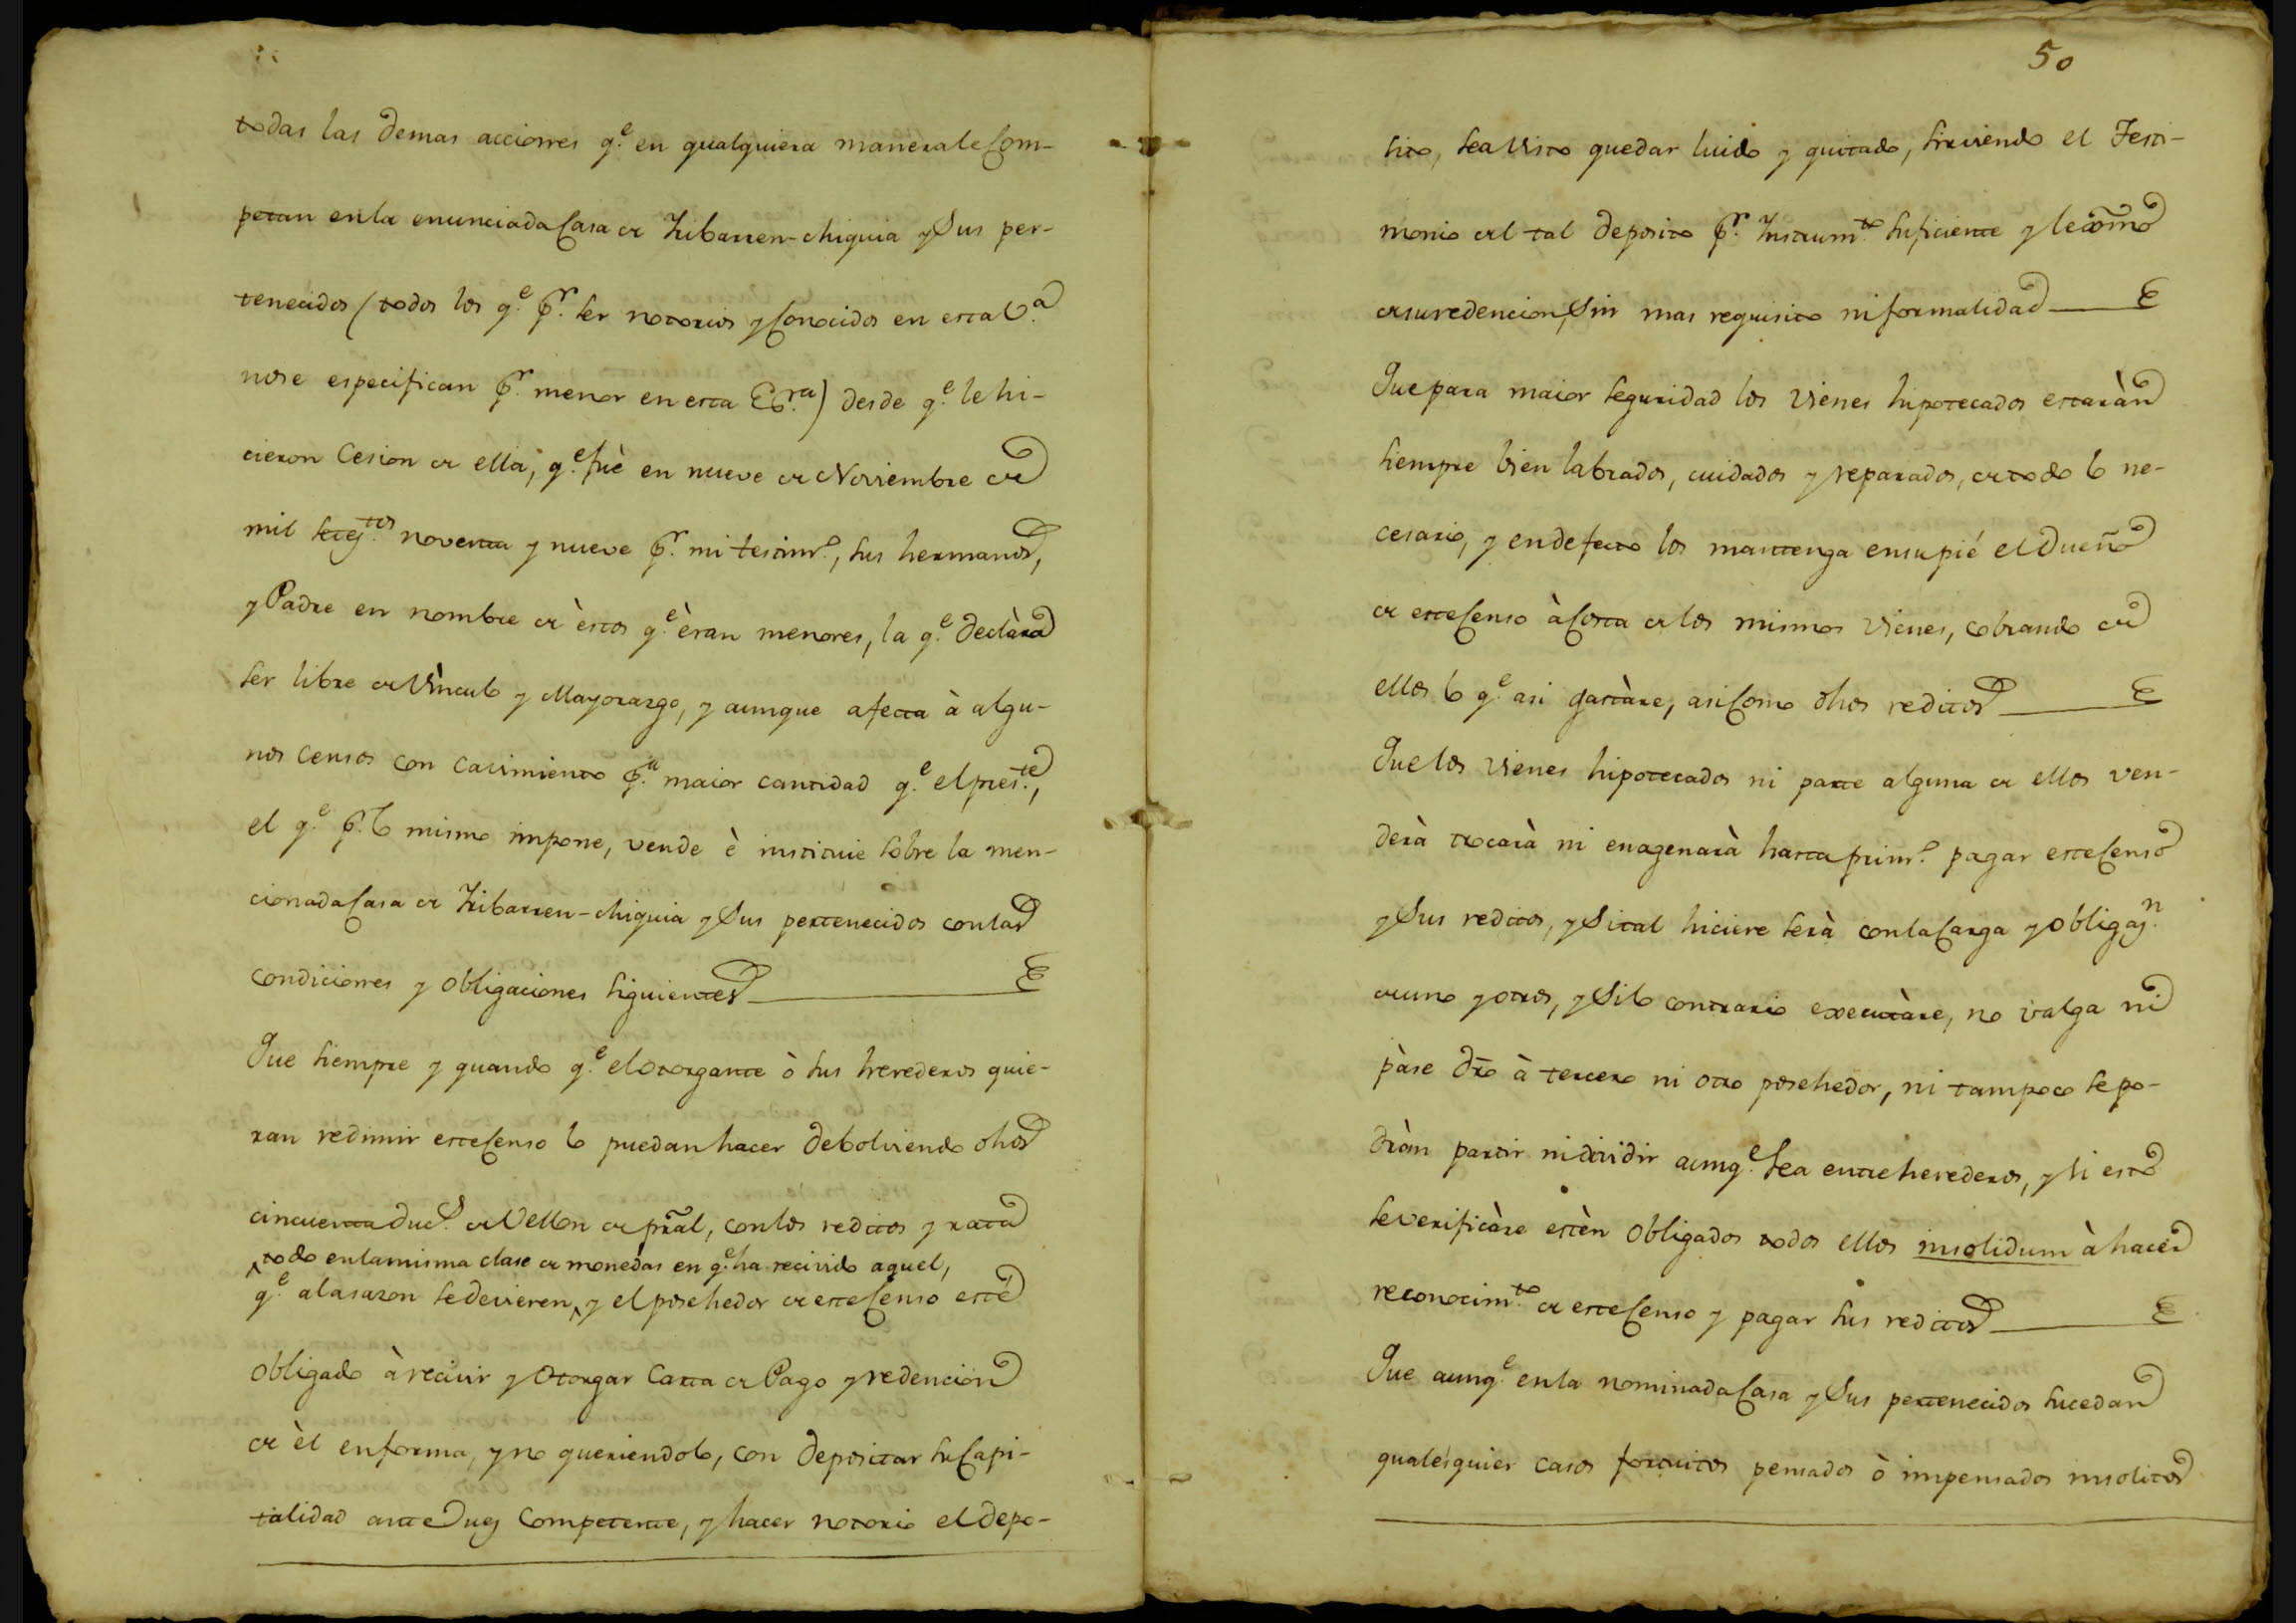 todas las demas acciones q.e en qualquiera manera le Com-
petan en la enunciada Casa de Iribarren-chiquia y Sus per-
tenecidos (todos los q.e p.r ser notorios y Conocidos en esta V.a
no se especifican p.r menor en esta Es.ra) desde q.e le hi-
cieron Cesion de ella, q.e fuè en nueve de Noviembre de
mil setez.tos noventa y nueve p.r mi testim.o, sus hermanos,
y Padre en nombre de èstos q.e èran menores, la q.e declàra
ser libre de Vìnculo y Mayorazgo, y aunque afecta à algu-
nos censos con cavimiento p.a maior cantidad q.e el pres.te,
el q.e p.r lo mismo impone, vende è instituie sobre la men-
cionada Casa de Iribarren-chiquia y Sus pertenecidos con las
condiciones y obligaciones siguientes
Que siempre y quando q.e el otorgante ò sus herederos quie-
ran redimir este Censo lo puedan hacer debolviendo dhos
cincuenta duc.s de Vellon de pral, con los reditos y rata
todo en la misma clase de monedas en q.e ha recivido aquel,
q.e a la sazon se devieren, y el posehedor de este Censo esté
obligado à recivir y otorgar Carta de Pago y redencion
de èl en forma, y no queriendolo, con depositar su Capi-
talidad ante Juez Competente, y hacer notorio el depo-
50
sito, sea visto quedar luido y quitado, sirviendo el Testi-
monio del tal deposito p.r Instrum.to suficiente y lexmo
de su redencion, Sin mas requisito ni formalidad
Que para maior seguridad los vienes hipotecados estaràn
siempre bien labrados, cuidados y reparados, de todo lo ne-
cesario, y en defecto los mantenga en su pié el Dueño
de este Censo à Costa de los mismos vienes, cobrando de
ellos lo q.e asi gastàre, asi Como dhos reditos
Que los vienes hipotecados ni parte alguna de ellos ven-
derà trocarà ni enagenarà hasta prim.o pagar este Censo
y Sus reditos, y Si tal hiciere serà con la Carga y obligaz.n
de uno y otros, y Si lo contrario executàre, no valga ni
pàse dro à tercero ni otro posehedor, ni tampoco se po-
dràn partir ni dividir aunq.e sea entre herederos, y si esto
se verificàre estèn obligados todos ellos insolidum à hacer
reconocim.to de este Censo y pagar sus reditos
Que aunq.e en la nominada Casa y Sus pertenecidos sucedan
qualesquier casos fortuitos pensados ò impensados insolitos